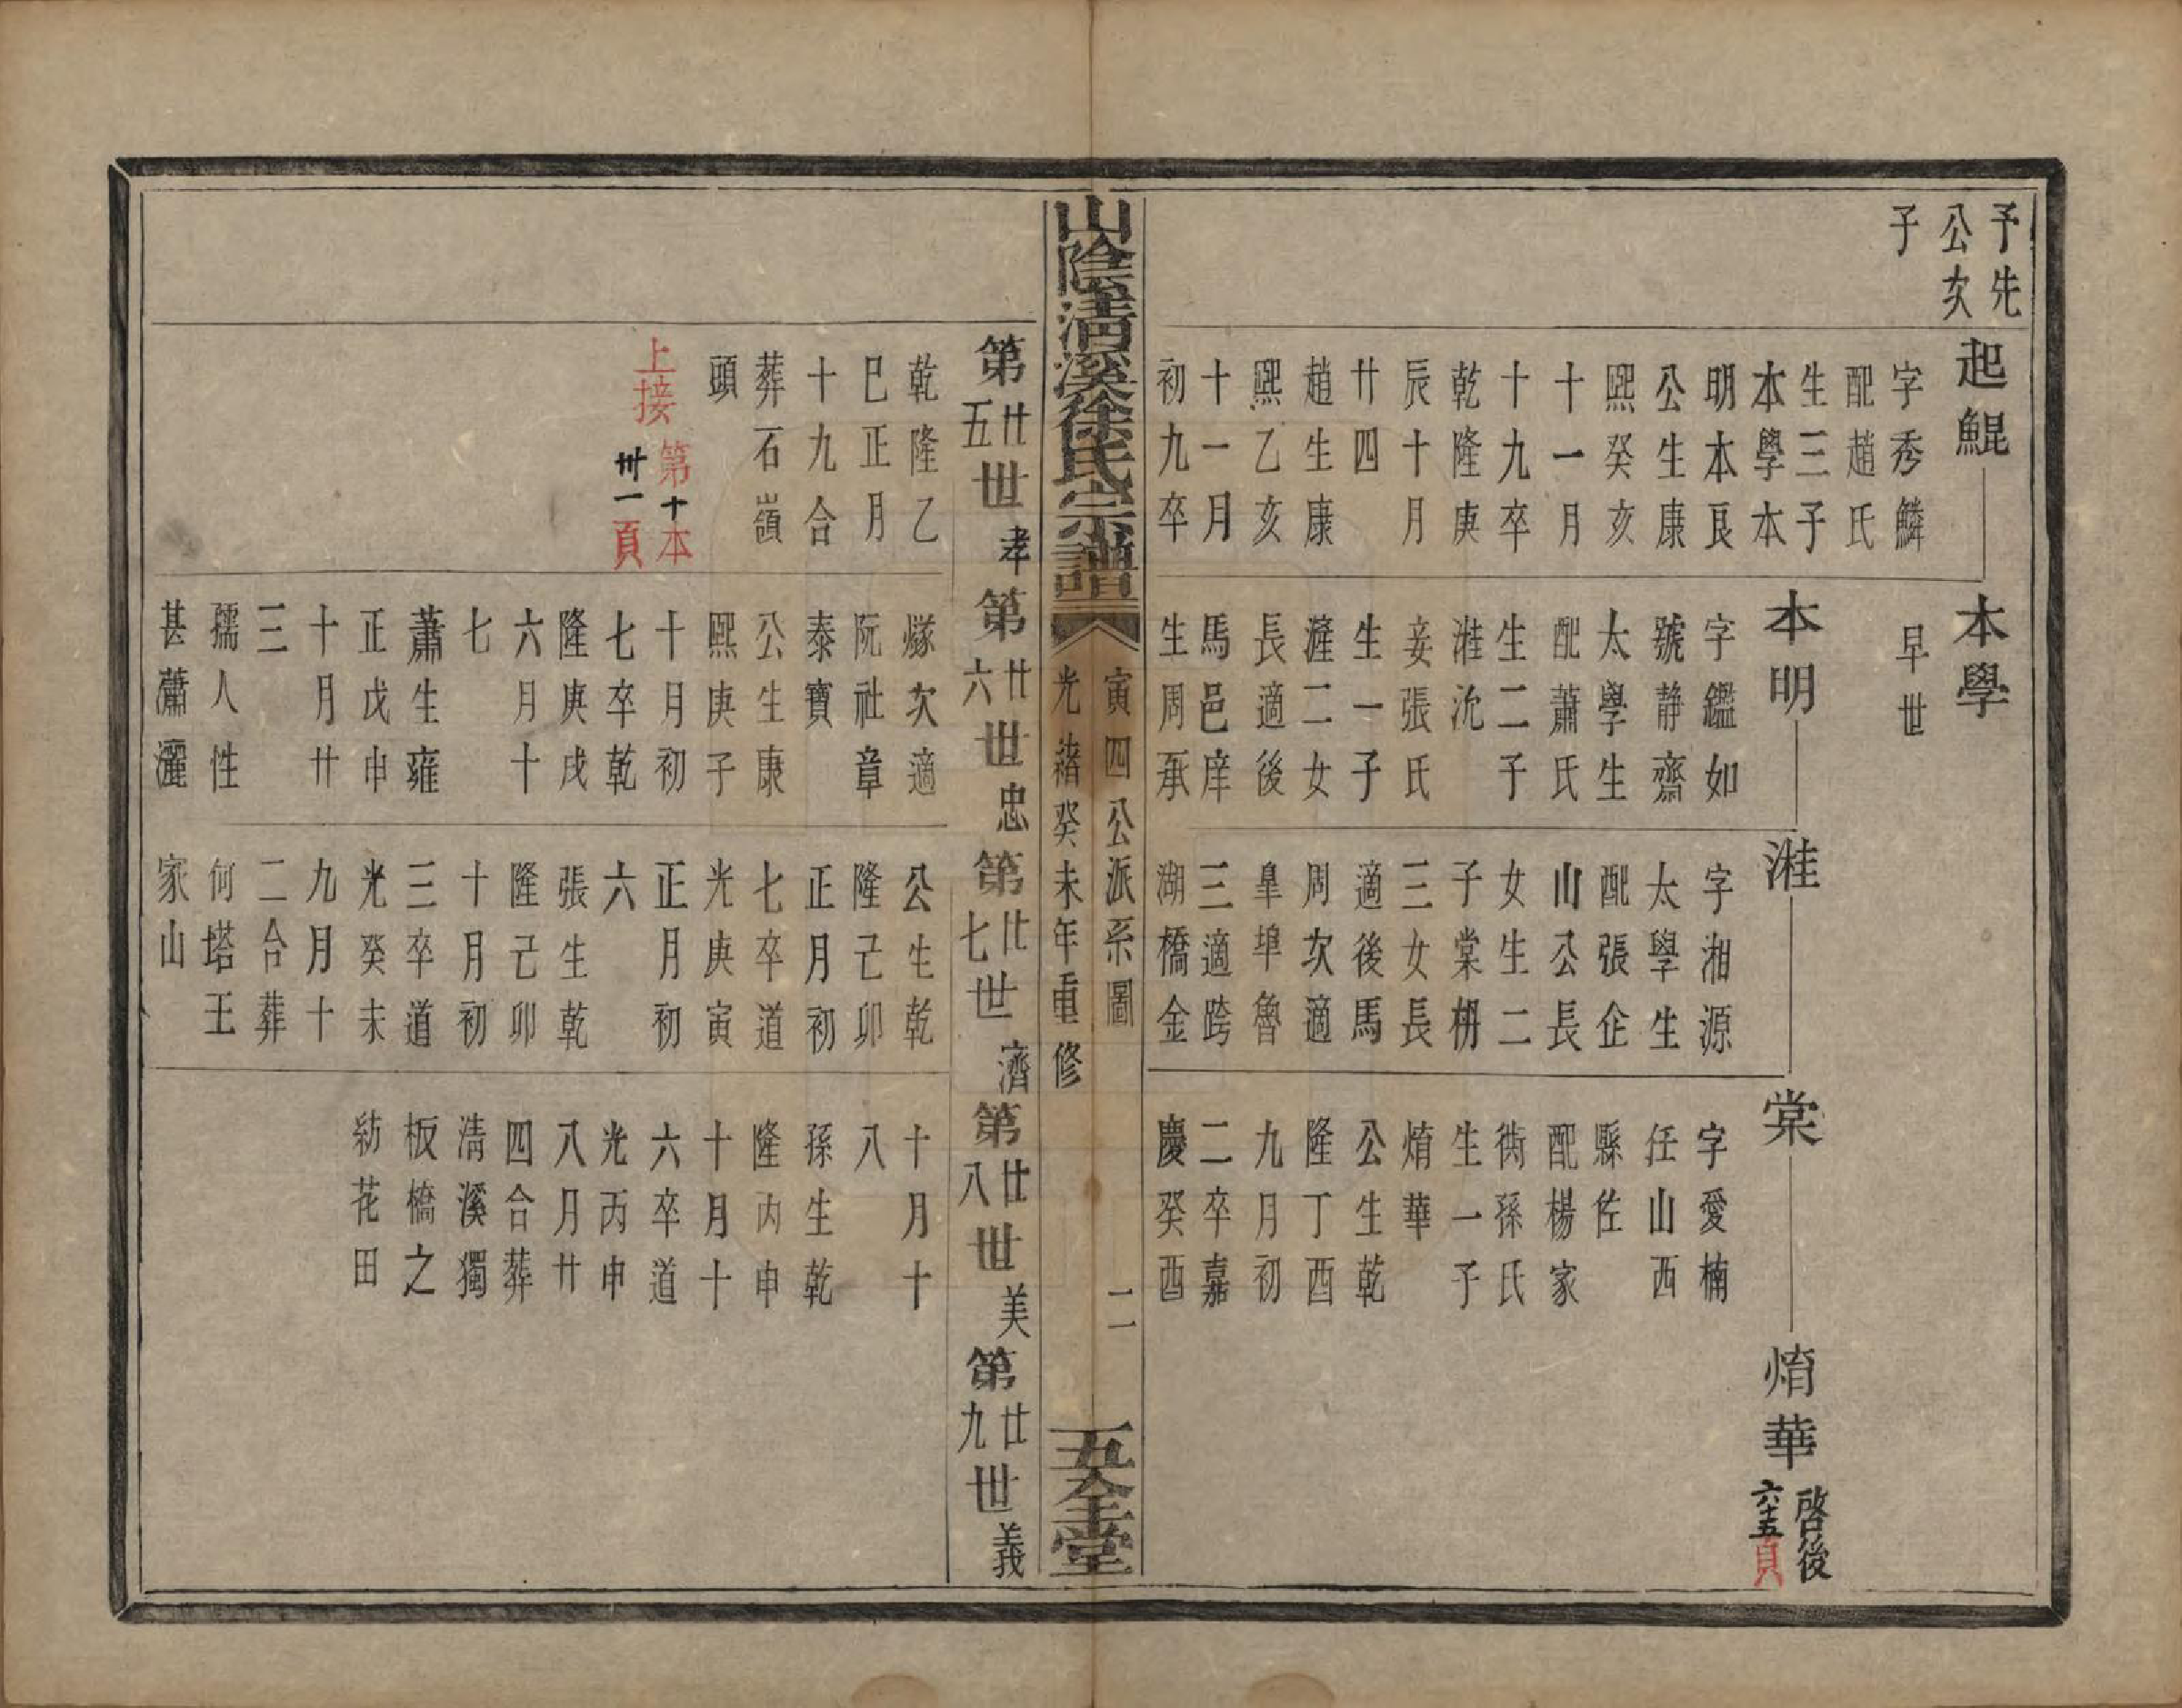 予先
公次
子
起鯤
字秀鱗
配趙氏
生三子
本學本
明本良
公生康
熙癸亥
十一月
十九卒
乾隆庚
辰十月
廿四
趙生康
熙乙亥
十一月
初九卒
本學
早世
本明
字鑑如
號靜齋
太學生
配蕭氏
生二子
漄沇
妾張氏
生一子
漄二女
長適後
馬邑庠
生周承
漄
字湘源
太學生
配張企
山公長
女生二
子棠枬
三女長
適後馬
周次適
皐埠魯
三適跨
湖橋金
棠
字愛楠
任山西
縣佐
配楊家
衖孫氏
生一子
焴華
公生乾
隆丁酉
九月初
二卒嘉
慶癸酉
焴華
啓後
六十五頁
山陰清溪徐氏宗譜
寅四公派系圖
光緒癸未年重修
二
五全堂
第廿五世 孝
第廿六世 忠
第廿七世 濟
第廿八世 美
第廿九世 義
乾隆乙
巳正月
十九合
葬石嶺
頭
上接第十本
卅一頁
燧次適
阮社章
泰寶
公生康
熙庚子
十月初
七卒乾
隆庚戌
六月十
七
蕭生雍
正戊申
十月廿
三
孺人性
甚蕭灑
公生乾
隆己卯
正月初
七卒道
光庚寅
正月初
六
張生乾
隆己卯
十月初
三卒道
光癸未
九月十
二合葬
何塔王
家山
十月十
八
孫生乾
隆丙申
十月十
六卒道
光丙申
八月廿
四合葬
清溪獨
板橋之
紡花田